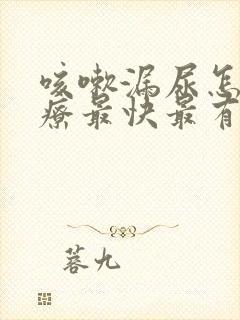 咳嗽漏尿怎
疗最快最有
蒼九